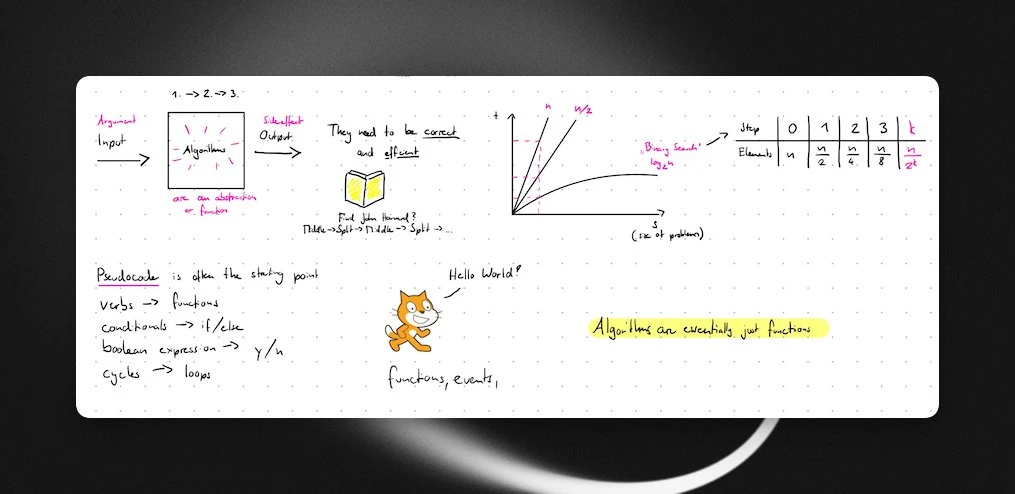 1. → 2. → 3.
Argument
Input
Algorithms
are an abstraction
or function
Side effect
Output
They need to be correct
and efficient
Find John Harvard?
Middle → Split → Middle → Split → ...
t
n
n/2
"Binary Search"
log₂n
s
(size of problem)
Step 0 1 2 3 k
Elements n n/2 n/4 n/8 n/2ᵏ
Pseudocode is often the starting point
verbs → functions
conditionals → if/else
boolean expression → y/n
cycles → loops
Hello World!
functions, events,
Algorithms are essentially just functions